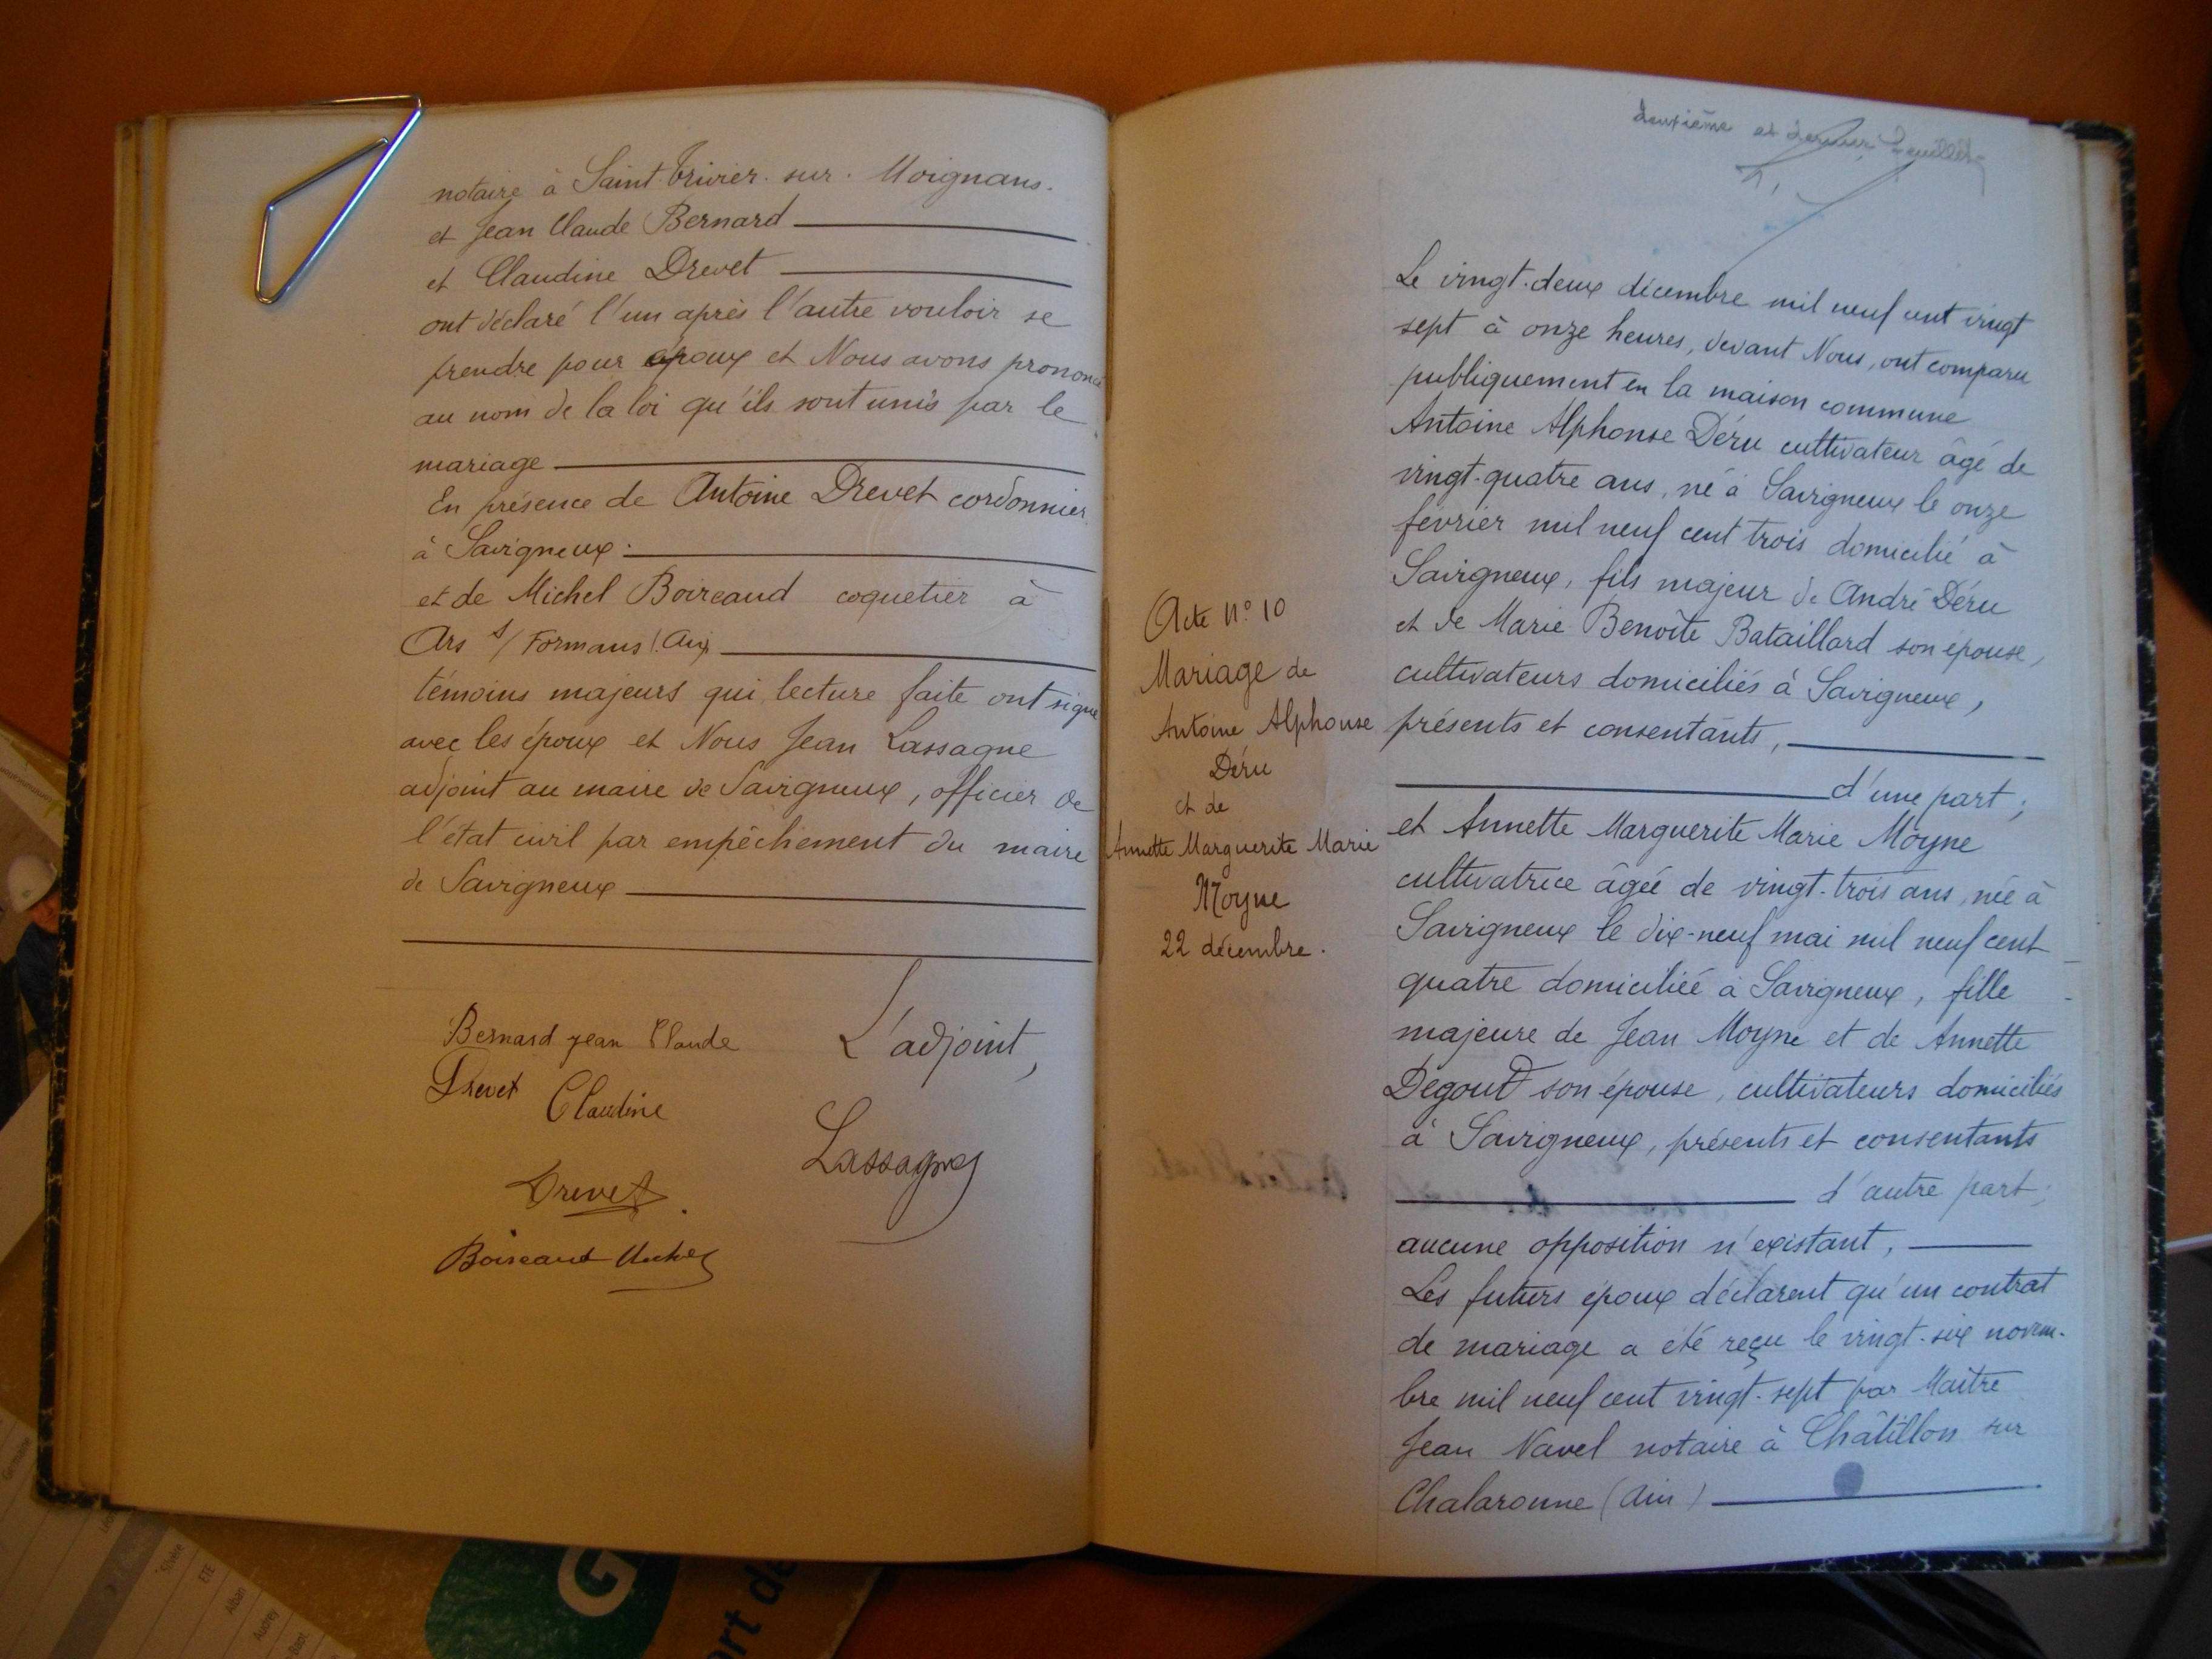 notaire à Saint-Trivier-sur-Moignans.
et Jean Claude Bernard
et Claudine Drevet
ont déclaré l'un après l'autre vouloir se
prendre pour époux et Nous avons prononcé
au nom de la loi qu'ils sont unis par le
mariage
En présence de Antoine Drevet cordonnier
à Savigneux.
et de Michel Boireaud coquetier à
Ars s/ Formans (Ain)
témoins majeurs qui, lecture faite ont signé
avec les époux et Nous Jean Lassagne
adjoint au maire de Savigneux, officier de
l'état civil par empêchement du maire
de Savigneux
Bernard jean Claude
Drevet Claudine
L'adjoint,
Lassagne
Drevet
Boireaud Michel
deuxième et dernier feuillet
Acte N° 10
Mariage de
Antoine Alphonse
Déru
et de
Annette Marguerite Marie
Moyne
22 décembre.
Le vingt-deux décembre mil neuf cent vingt
sept à onze heures, devant Nous, ont comparu
publiquement en la maison commune
Antoine Alphonse Déru cultivateur âgé de
vingt-quatre ans, né à Savigneux le onze
février mil neuf cent trois domicilié à
Savigneux, fils majeur de André Déru
et de Marie Benoîte Bataillard son épouse,
cultivateurs domiciliés à Savigneux,
présents et consentants,
d'une part;
et Annette Marguerite Marie Moyne
cultivatrice âgée de vingt-trois ans, née à
Savigneux le dix-neuf mai mil neuf cent
quatre domiciliée à Savigneux, fille
majeure de Jean Moyne et de Annette
Dégout son épouse, cultivateurs domiciliés
à Savigneux, présents et consentants
d'autre part;
aucune opposition n'existant,
Les futurs époux déclarent qu'un contrat
de mariage a été reçu le vingt-six novem-
bre mil neuf cent vingt-sept par Maître
Jean Navel notaire à Châtillon sur
Chalaronne (Ain)
G
ETE
Alban
Audrey